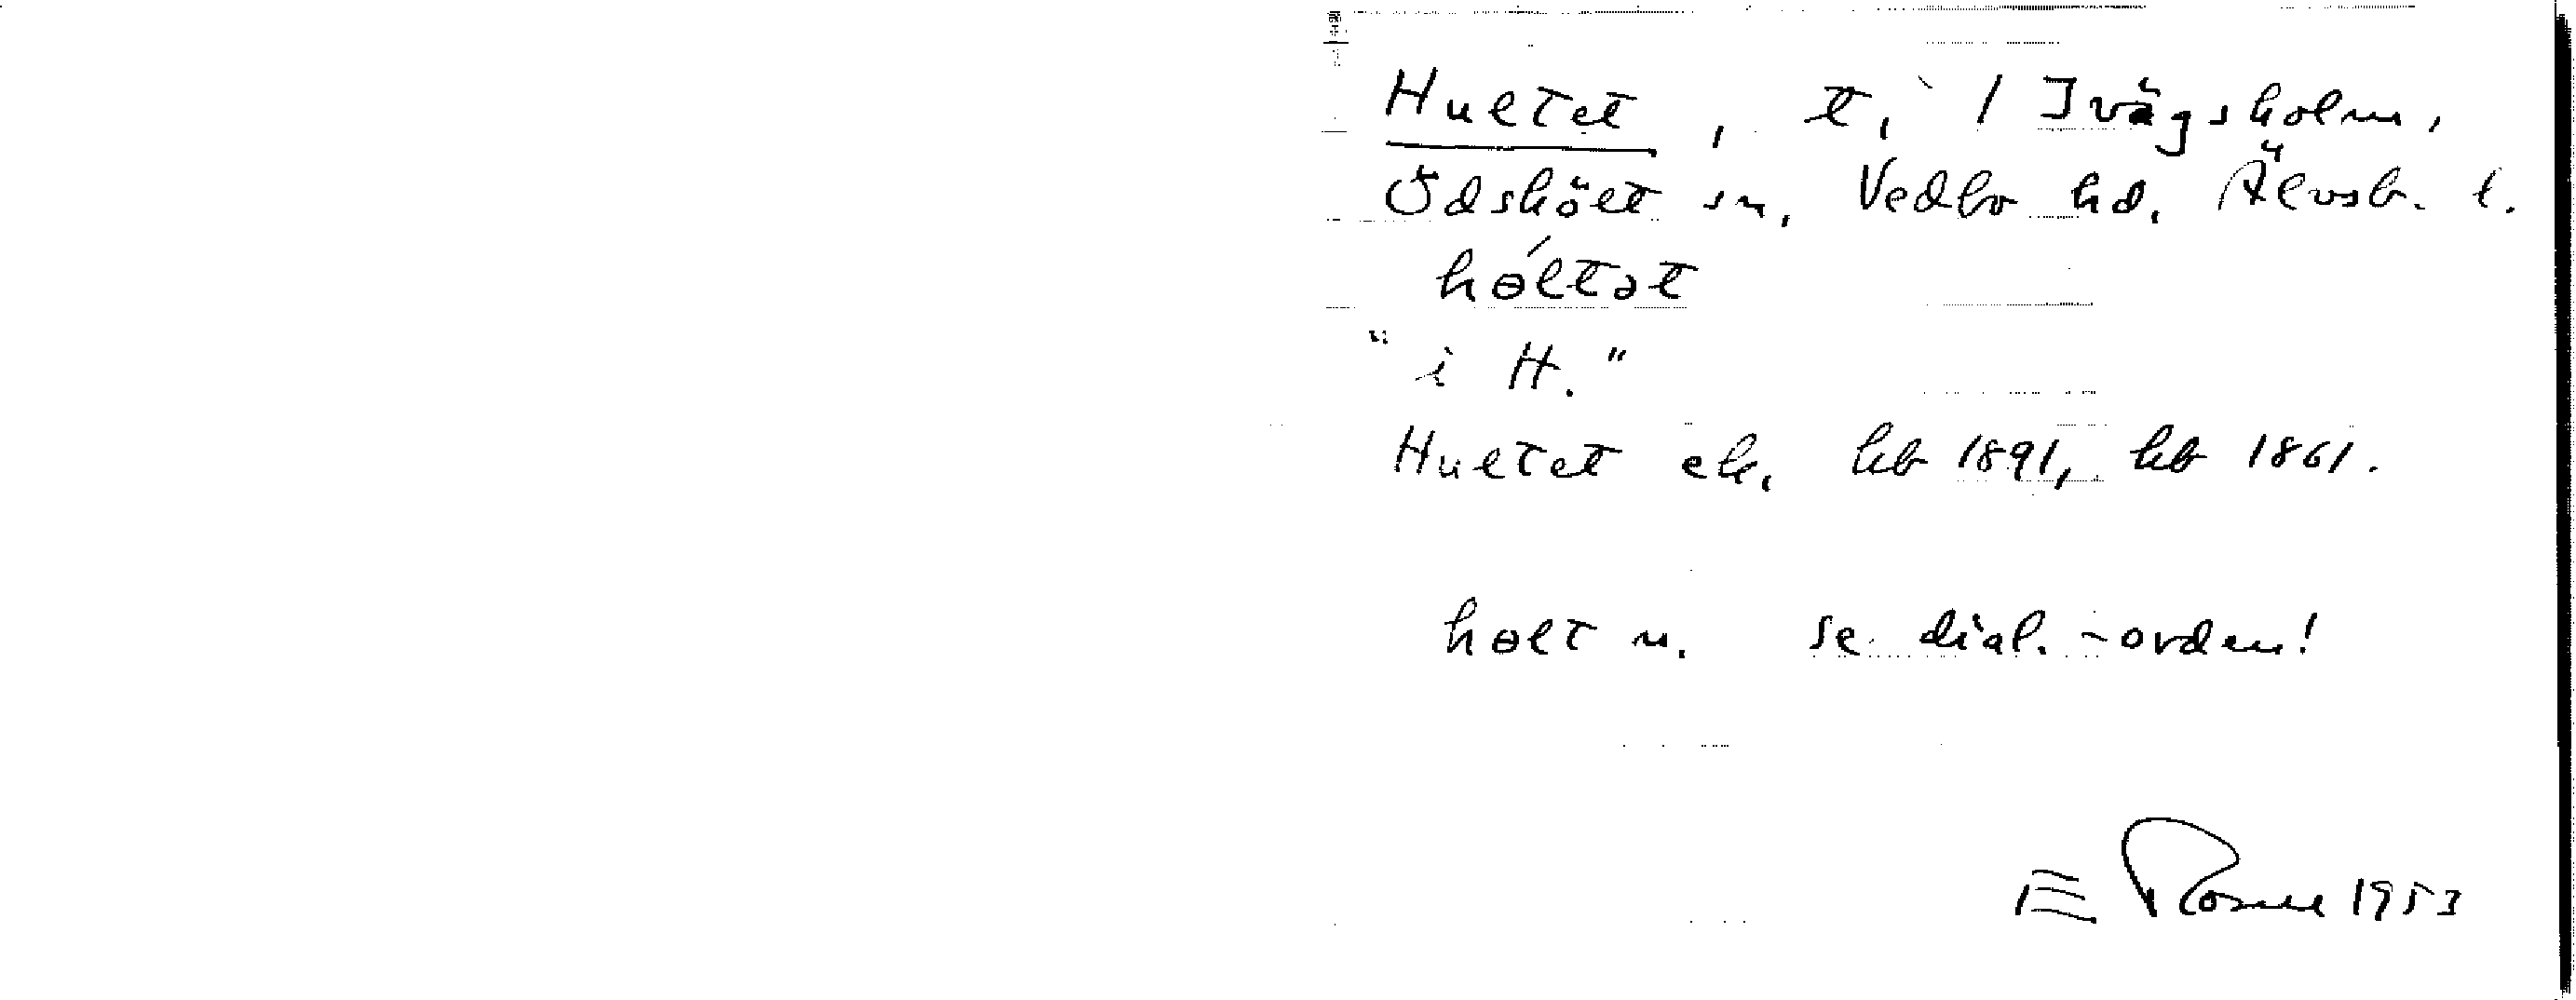 Hultet, t, / Ivägsholm,
Ödskölt sn, Vedbo hd, Älvsb. l.
hɵ́ltət
"i H."
Hultet ek, hb 1891, hb 1861.
hɵlt n. se dial.-orden!
E Rosell 1953